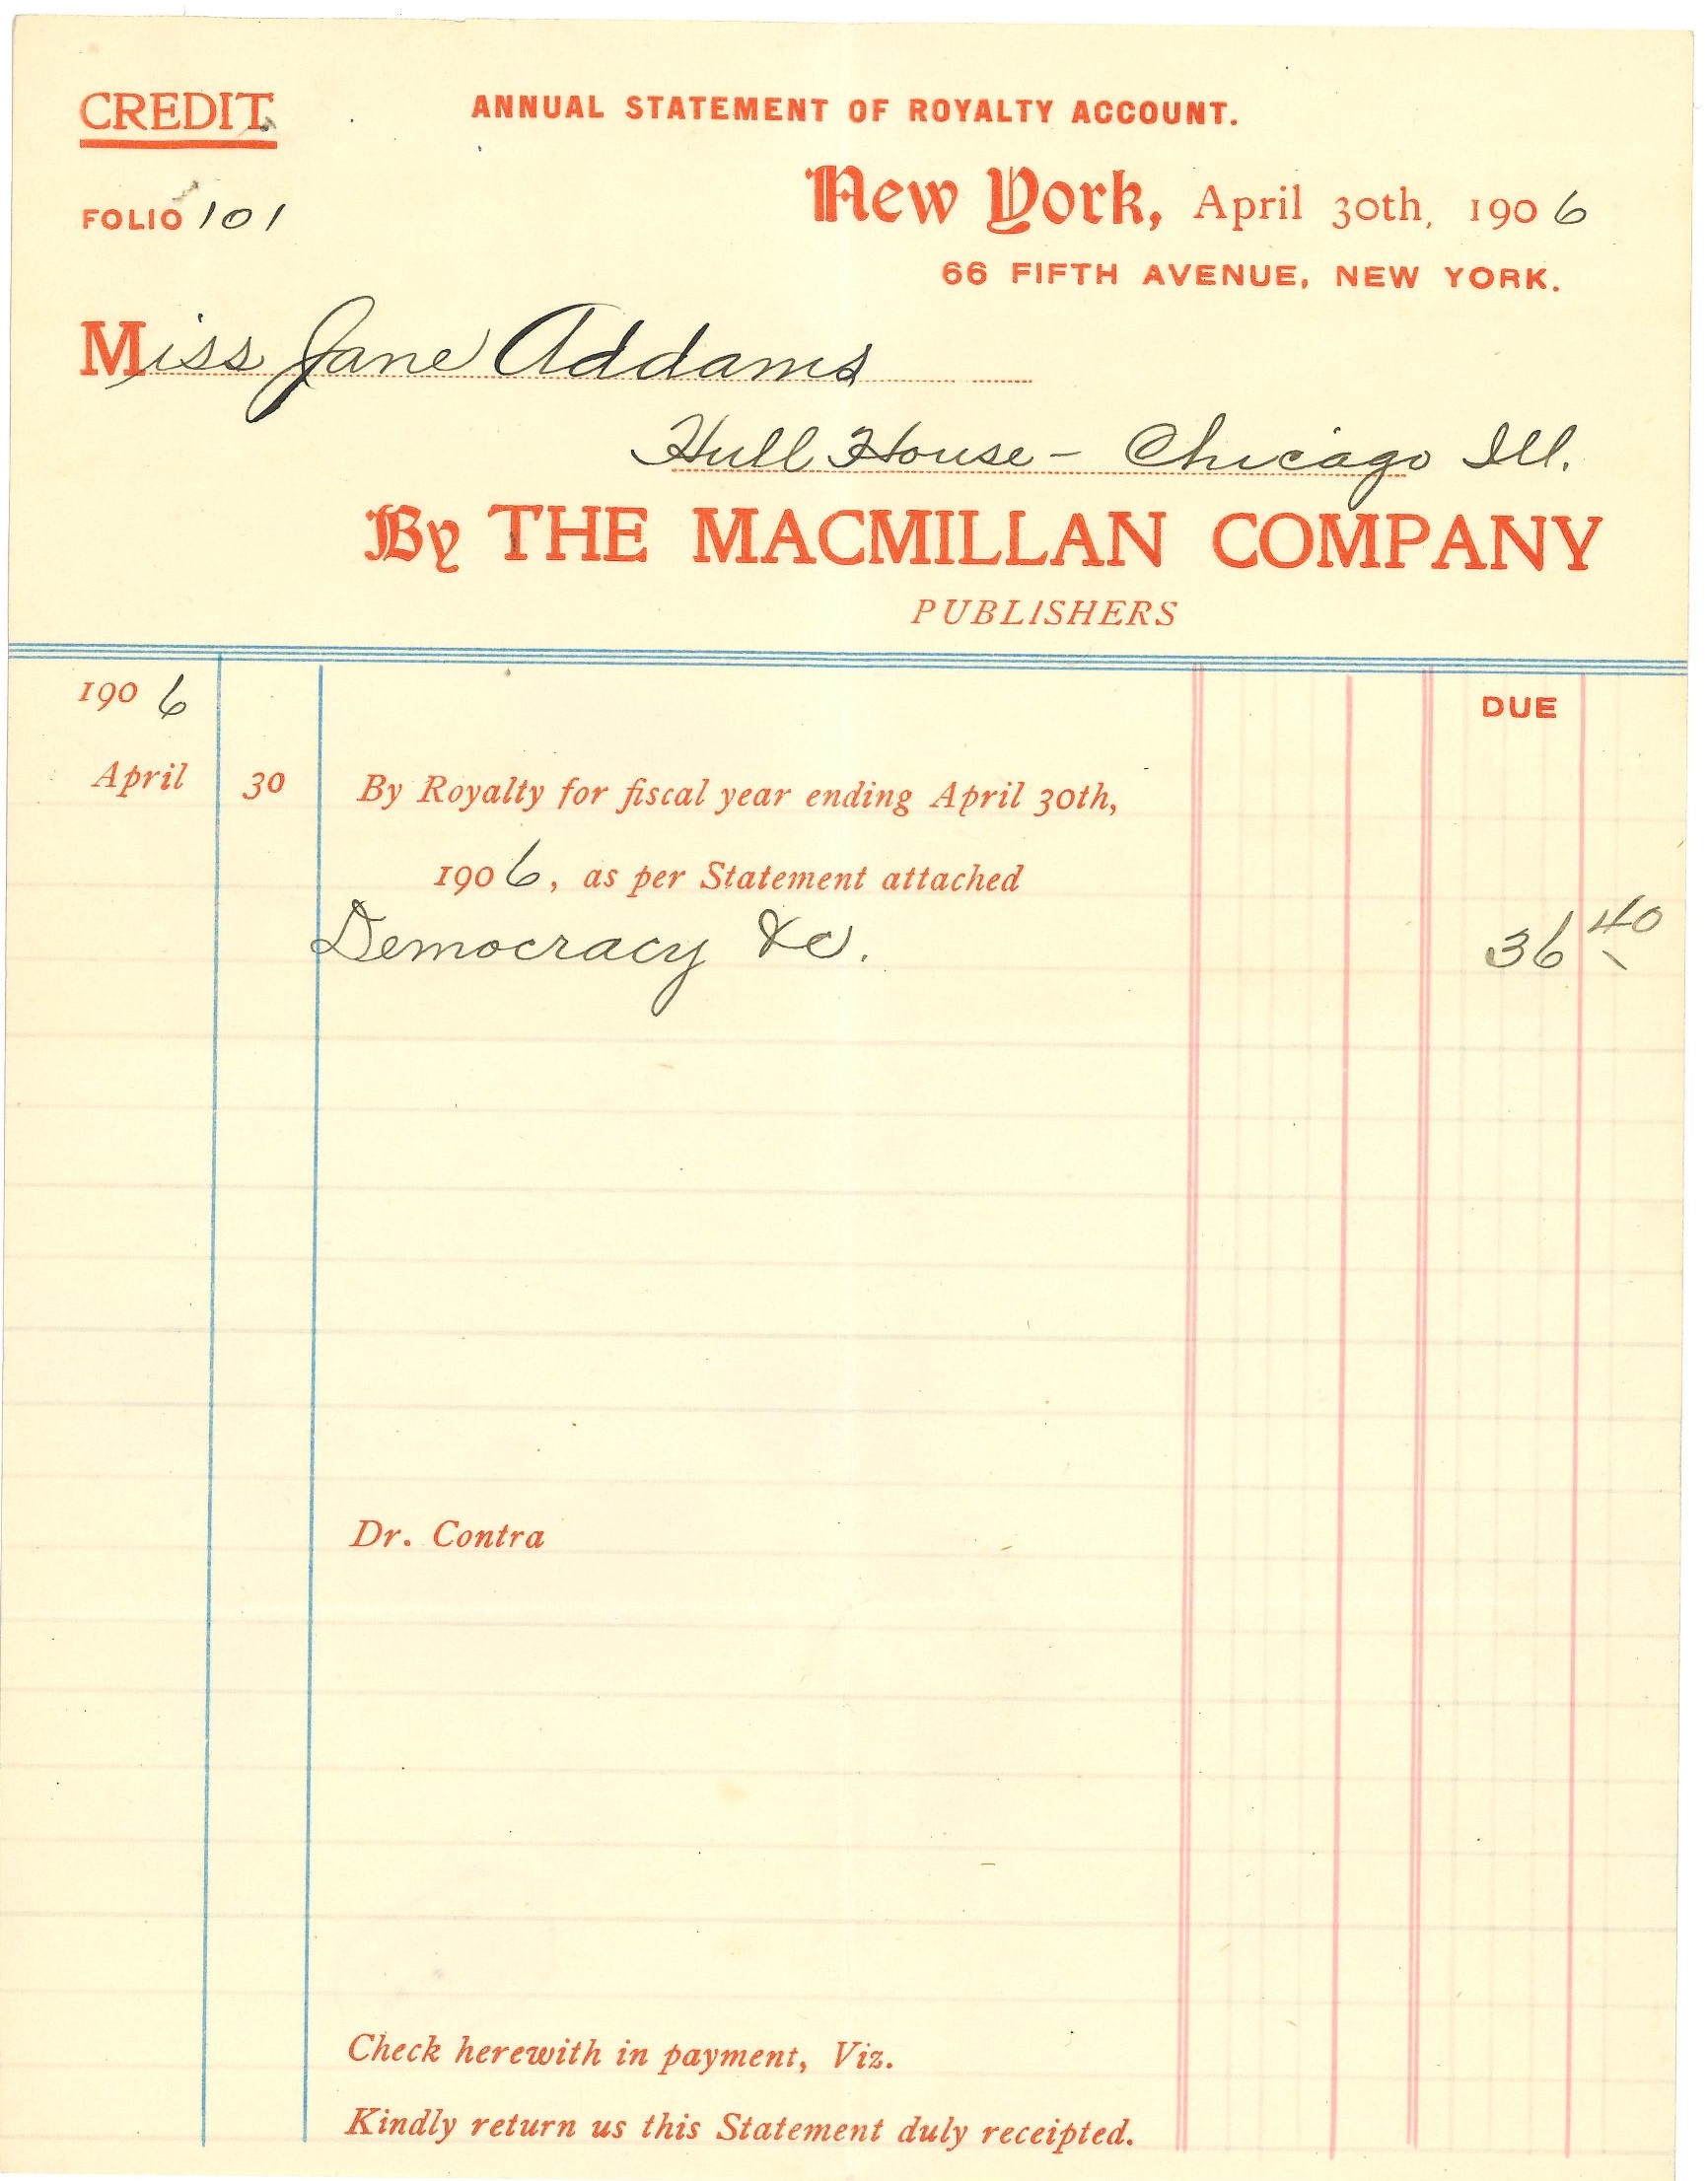 CREDIT.
ANNUAL STATEMENT OF ROYALTY ACCOUNT.
FOLIO 101
New York, April 30th, 1906
66 FIFTH AVENUE, NEW YORK.
Miss Jane Addams
Hull House - Chicago Ill.
By THE MACMILLAN COMPANY
PUBLISHERS
1906 DUE
April 30 By Royalty for fiscal year ending April 30th,
1906, as per Statement attached
Democracy &c. 36 40
Dr. Contra
Check herewith in payment, Viz.
Kindly return us this Statement duly receipted.